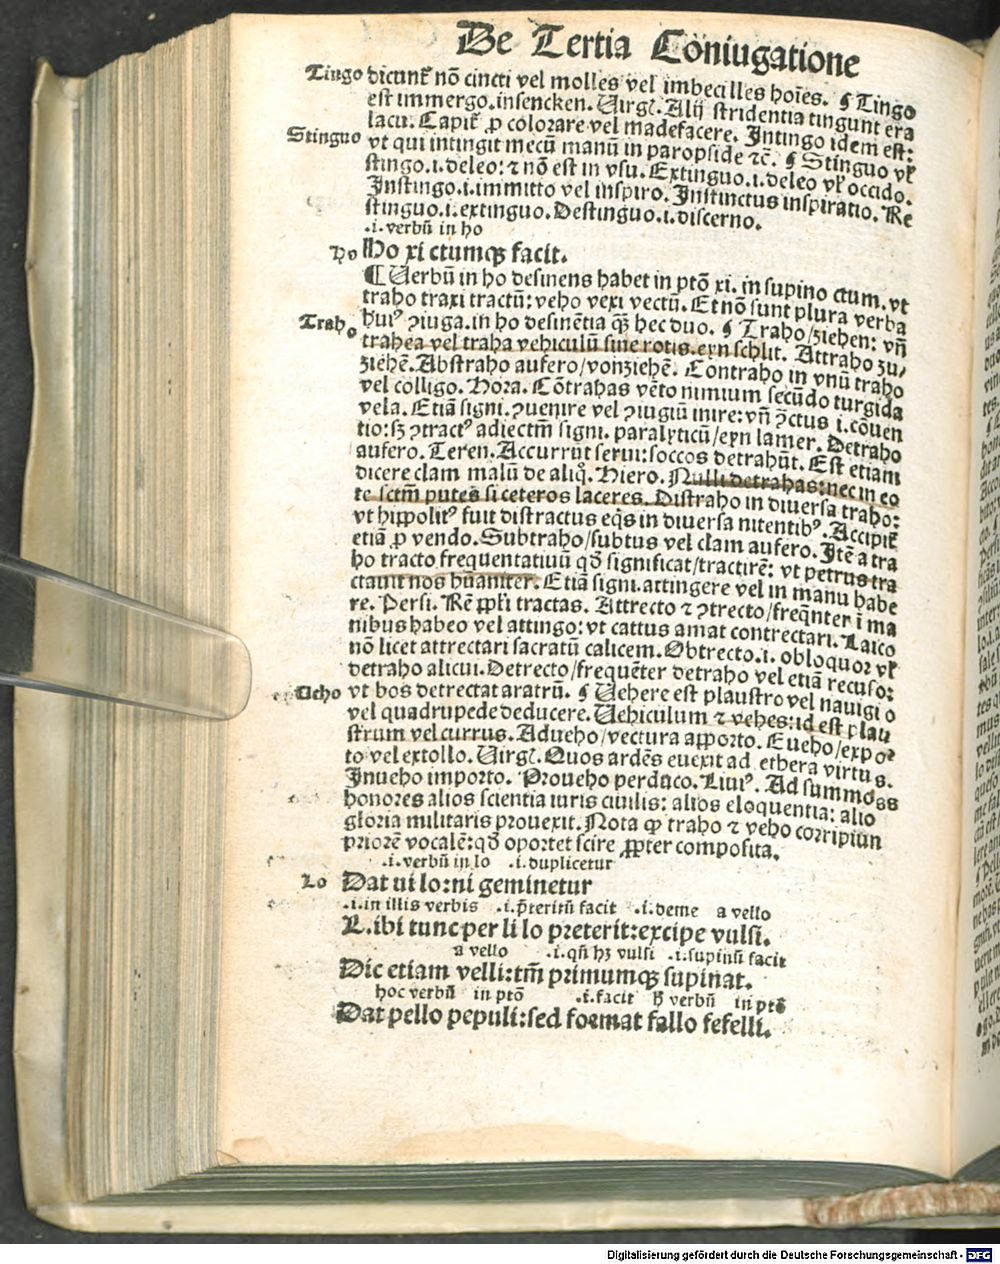 De Tertia Coniugatione
Tingo dicunt̃ nõ cincti vel molles vel imbecilles hoĩes. ¶ Tingo
est immergo.insencken. Uirgĩ. Alij stridentia tingunt era
lacu. Capit̃ ꝓ colorare vel madefacere. Intingo idem est:
Stinguo vt qui intingit mecũ manũ in paropside ⁊c̃. ¶ Stinguo vl̃
stingo.i.deleo: ⁊ nõ est in vsu. Extinguo.i.deleo vl̃ occido.
Instingo.i.immitto vel inspiro. Instinctus inspiratio. Re
stinguo.i.extinguo. Destinguo.i.discerno.
.i. verbũ in ho
Ho Ho xi ctumqꝫ facit.
¶ Uerbũ in ho desinens habet in ptõ xi. in supino ctum. vt
traho traxi tractũ: veho vexi vectũ. Et nõ sunt plura verba
huiꝰ ꝯiuga. in ho desinẽtia qꝫ hec duo. ¶ Traho/ziehen: vñ
Traho trahea vel traha vehiculũ sine rotis. eyn schlit. Attraho zu/
ziehẽ. Abstraho aufero/vonziehẽ. Contraho in vnũ traho
vel colligo. Hora. Cõtrahas vẽto nimium secũdo turgida
vela. Etiã signi. ꝯuenire vel ꝯiugiũ inire: vñ ꝯ̃ctus i. cõuen
tio: sꝫ ꝯtractꝰ adiectm̃ signi. paralyticũ/eyn lamer. Detraho
aufero. Teren. Accurrũt serui: soccos detrahũt. Est etiam
dicere clam malũ de aliq̊. Hiero. Nulli detrahas: nec in eo
te sctm̃ putes si ceteros laceres. Distraho in diuersa traho:
vt hippolitꝰ fuit distractus eq̃s in diuersa nitentibꝰ. Accipit̃
etiã ꝓ vendo. Subtraho/subtus vel clam aufero. Itẽ a tra
ho tracto frequentatiuũ qð significat/tractirẽ: vt petrus tra
ctauit nos hũaniter. Etiã signi. attingere vel in manu habe
re. Persi. Rẽ ꝓpr̃i tractas. Attrecto ⁊ ꝯtrecto/freq̃nter ĩ ma
nibus habeo vel attingo: vt cattus amat contrectari. Laico
nõ licet attrectari sacratũ calicem. Obtrecto.i. obloquor vl̃
detraho alicui. Detrecto/frequẽter detraho vel etiã recuso:
Ueho vt bos detrectat aratrũ. ¶ Uehere est plaustro vel nauigio
vel quadrupede deducere. Uehiculum ⁊ vehes: id est plau
strum vel currus. Adueho/vectura apporto. Eueho/expor
to vel extollo. Uirgĩ. Quos ardẽs euexit ad ethera virtus.
Inueho importo. Proueho perduco. Liuiꝰ. Ad summoss
honores alios scientia iuris ciuilis: alios eloquentia: alio
gloria militaris prouexit. Nota ꝙ traho ⁊ veho corripiun
priorẽ vocalẽ: qð oportet scire ꝓpter composita.
.i. verbũ in lo .i. duplicetur
Lo Dat ui lo: ni geminetur
.i. in illis verbis .i. p̃teritũ facit .i. deme a vello
L. ibi tunc per li lo preterit: excipe vulsi.
a vello .i. qñ hꝫ vulsi .i. supinũ facit
Dic etiam velli: tm̃ primumqꝫ supinat.
hoc verbũ in ptõ .i. facit ħ verbũ in ptõ
Dat pello pepuli: sed format fallo fefelli.
Digitalisierung gefördert durch die Deutsche Forschungsgemeinschaft - DFG